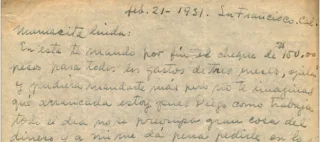 feb. 21 - 1931. San Francisco. Cal.
Mamacita linda:
En esta te mando por fin el cheque de 100.00
pesos para todos los gastos de tres meses, ojalá
y pudiera mandarte más pero no te imaginas
que arrancada estoy, pues Diego como trabaja
todo el dia no se preocupa gran cosa del
dinero y a mi me dá pena pedirle en la